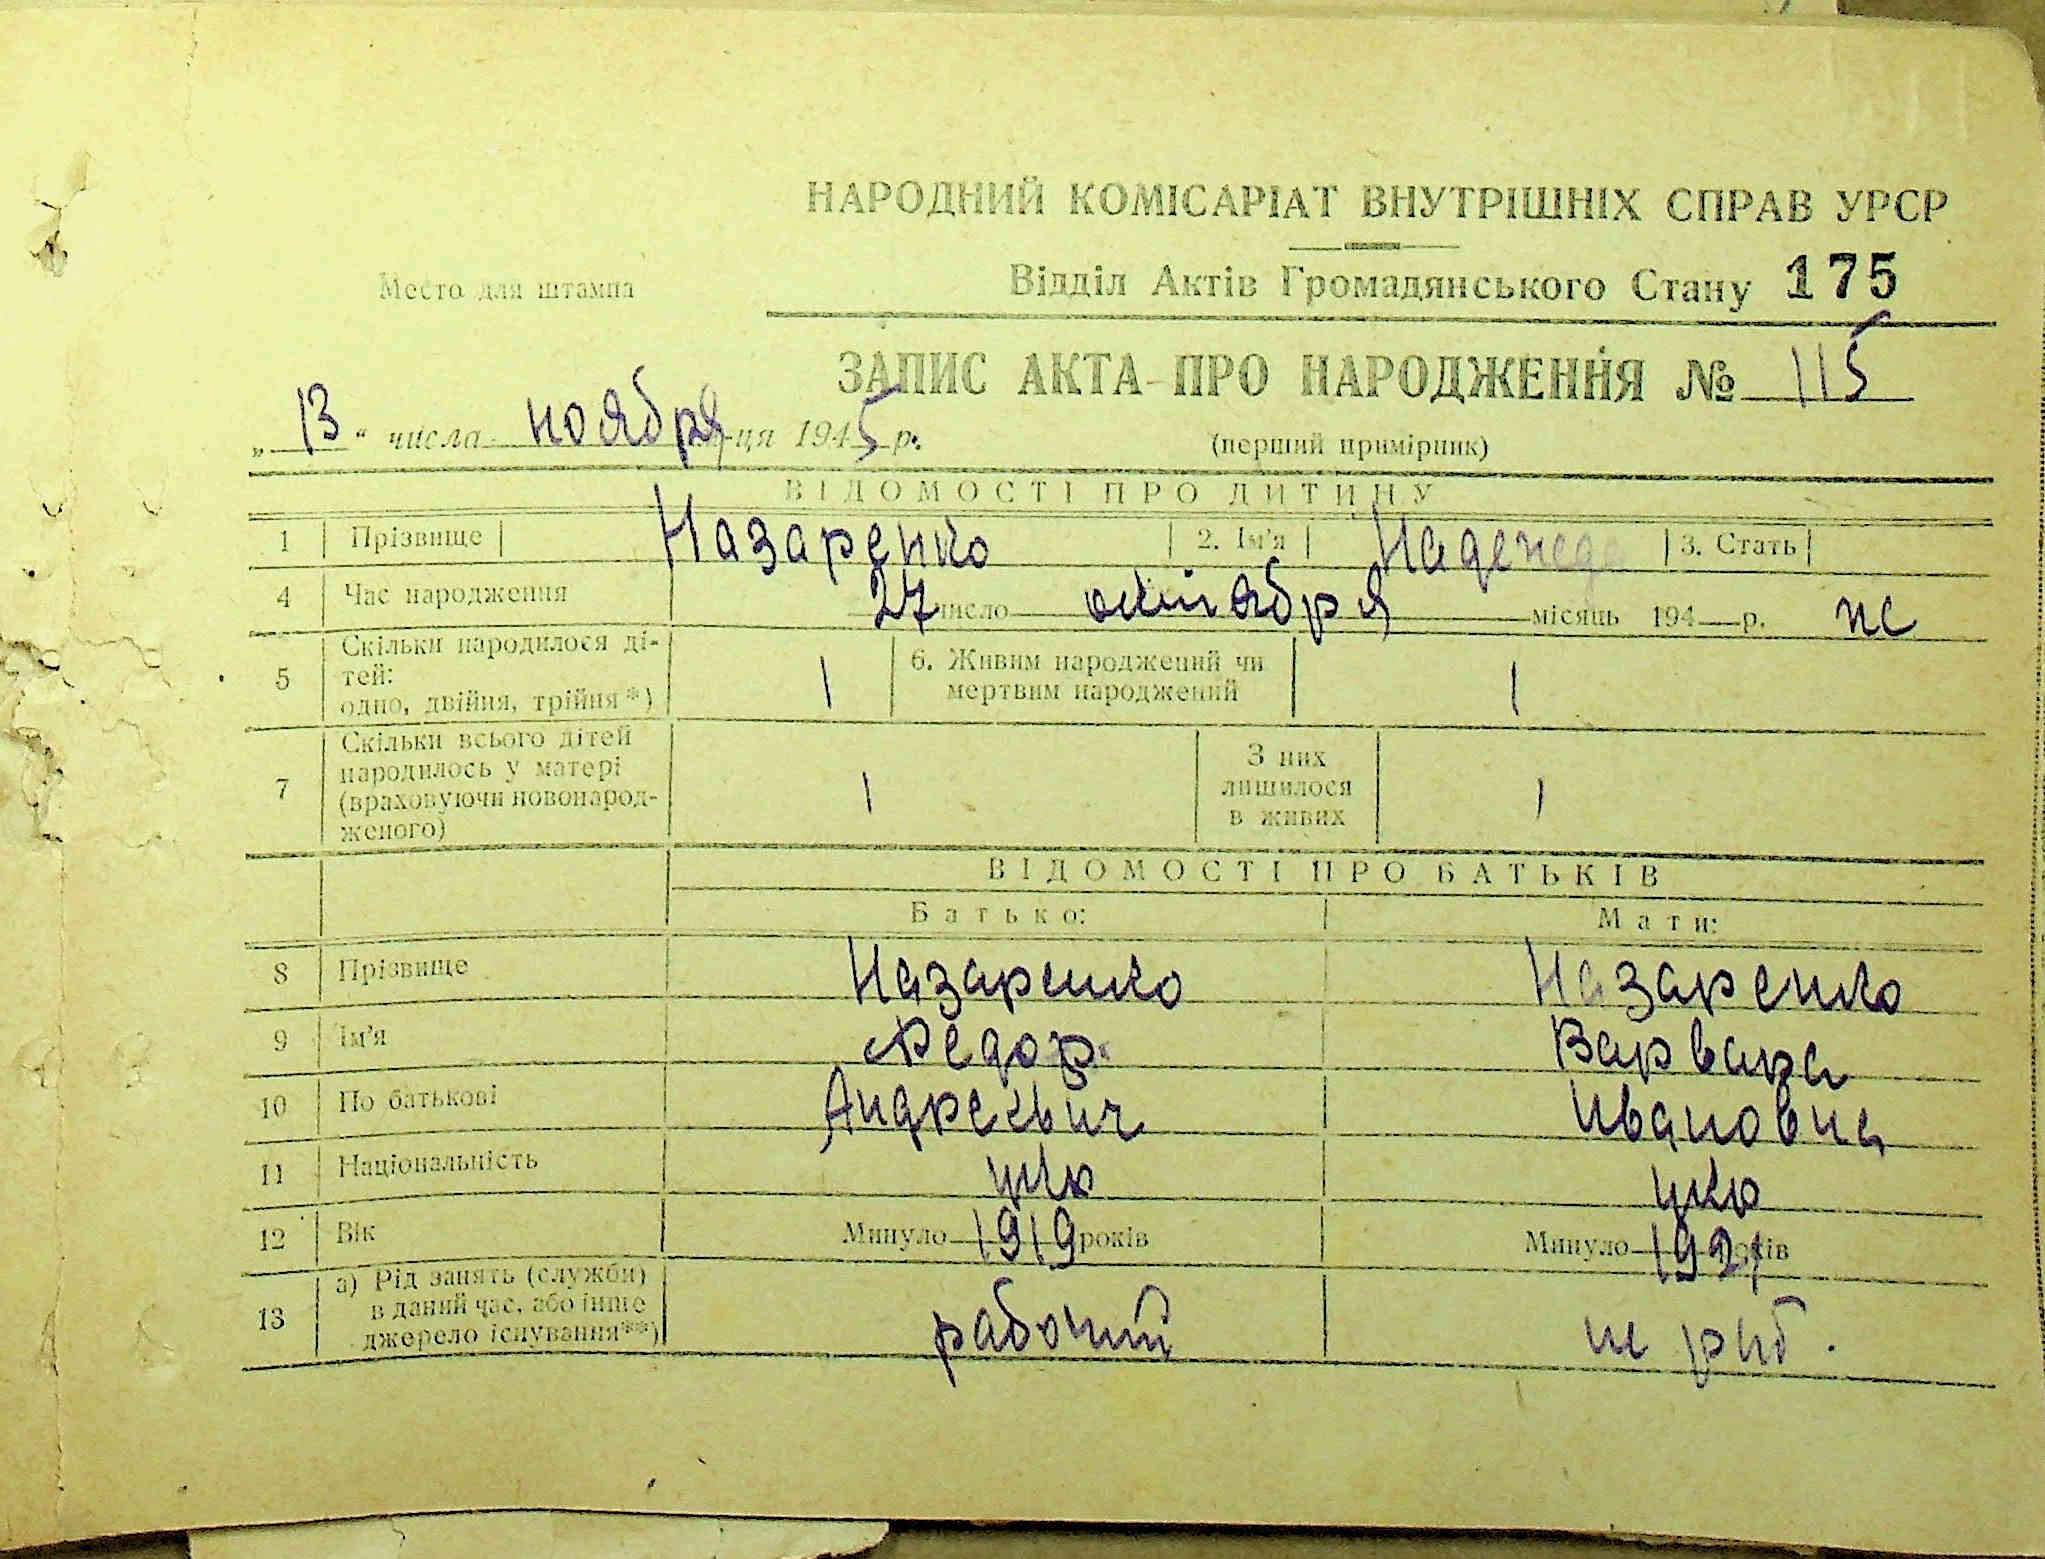 НАРОДНИЙ КОМІСАРІАТ ВНУТРІШНІХ СПРАВ УРСР
Место для штампа
Відділ Актів Громадянського Стану 175
ЗАПИС АКТА ПРО НАРОДЖЕННЯ № 115
„ 13 “ числа ноября -ця 1945 р.
(перший примірник)
ВІДОМОСТІ ПРО ДИТИНУ
1 Прізвище Назаренко 2. Ім'я Надежда 3. Стать
4 Час народження 27 число октября місяць 194 р. жс
5 Скільки народилося ді-
тей:
одно, двійня, трійня*) 1
6. Живим народжений чи
мертвим народжений 1
7 Скільки всього дітей
народилось у матері
(враховуючи новонарод-
женого) 1
З них
лишилося
в живих 1
ВІДОМОСТІ ПРО БАТЬКІВ
Батько: Мати:
8 Прізвище Назаренко Назаренко
9 Ім'я Федор Варвара
10 По батькові Андреевич Ивановна
11 Національність укр укр
12 Вік Минуло 1919 років Минуло 1921 років
13 а) Рід занять (служби)
в даний час, або інше
джерело існування**) рабочий не раб.